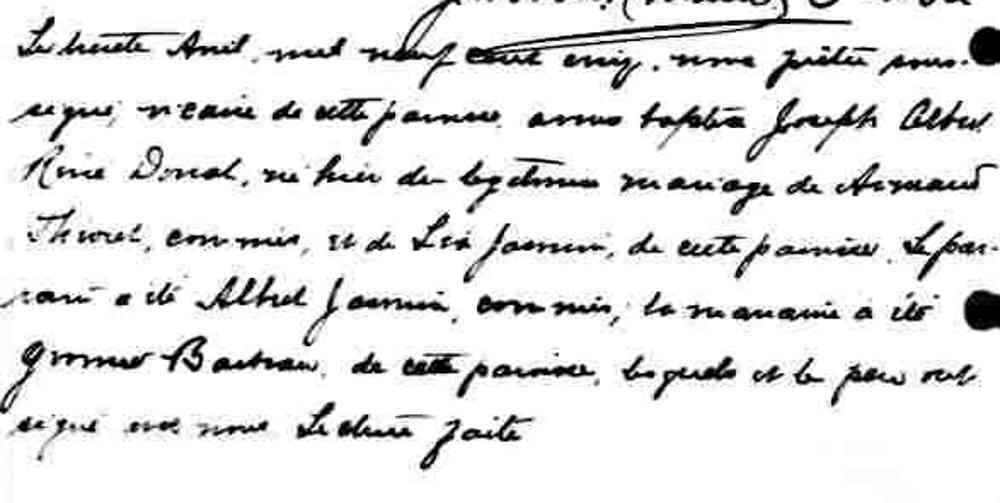 Le trente Avril, mil neuf cent cinq, nous prêtre sous-
signé, vicaire de cette paroisse avons baptisé Joseph Albert
René Donat, né hier du légitime mariage de Armand
Thouret, commis, et de Léa Jasmin, de cette paroisse. Le par-
rain a été Albert Jasmin, commis, la marraine a été
de cette paroisse, lesquels et le père ont
signé avec nous Lecture faite